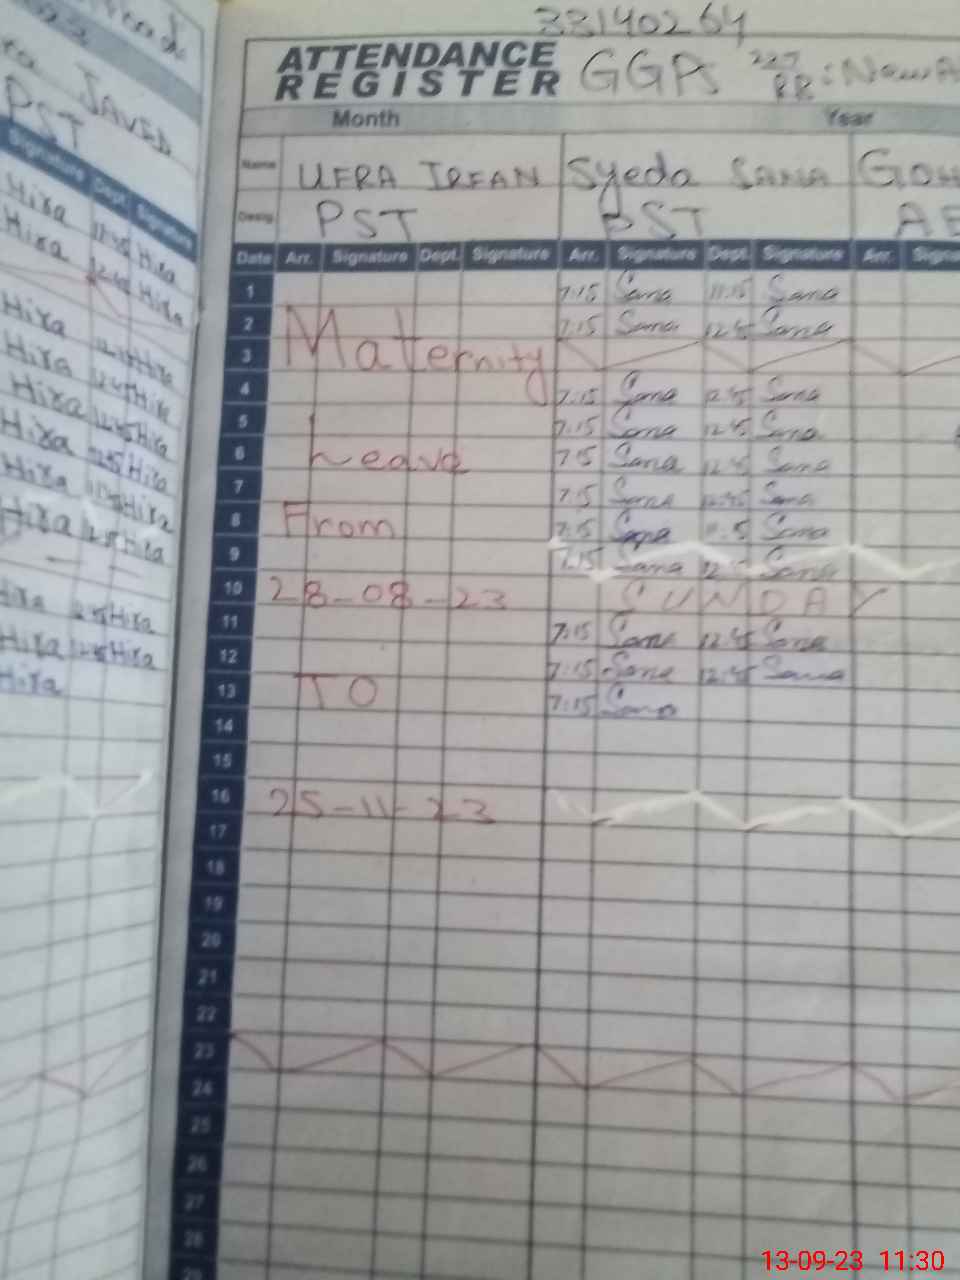 33140264
ATTENDANCE REGISTER GGPS 227
Month Year
Name UFRA IRFAN Syeda SANA
Desig. PST PST
Date Arr. Signature Dept. Signature Arr. Signature Dept. Signature Arr.
1 7:15 Sana 11:15 Sana
2 7:15 Sana 12:45 Sana
Maternity
3
4 7:15 Sana 12:45 Sana
5 7:15 Sana 12:45 Sana
6 Leave 7:15 Sana 12:45 Sana
7 7:15 Sana 12:45 Sana
8 From 7:15 Sana Sana
9 7:15 Sana Sana
10 28-08-23 SUNDAY
11 7:15 Sana 12:45 Sana
12 7:15 Sana 12:45 Sana
13 TO 7:15 Sana
14
15
16 25-11-23
17
18
19
20
21
22
23
24
25
26
27
28
JAVED
PST
Signature Dept. Signature
Hira Hira
Hira 12:45 Hira
Hira Hira
Hira 12:45 Hira
Hira 12:45 Hira
Hira Hira
Hira Hira
Hira Hira
Hira Hira
Hira Hira
Hira
13-09-23 11:30